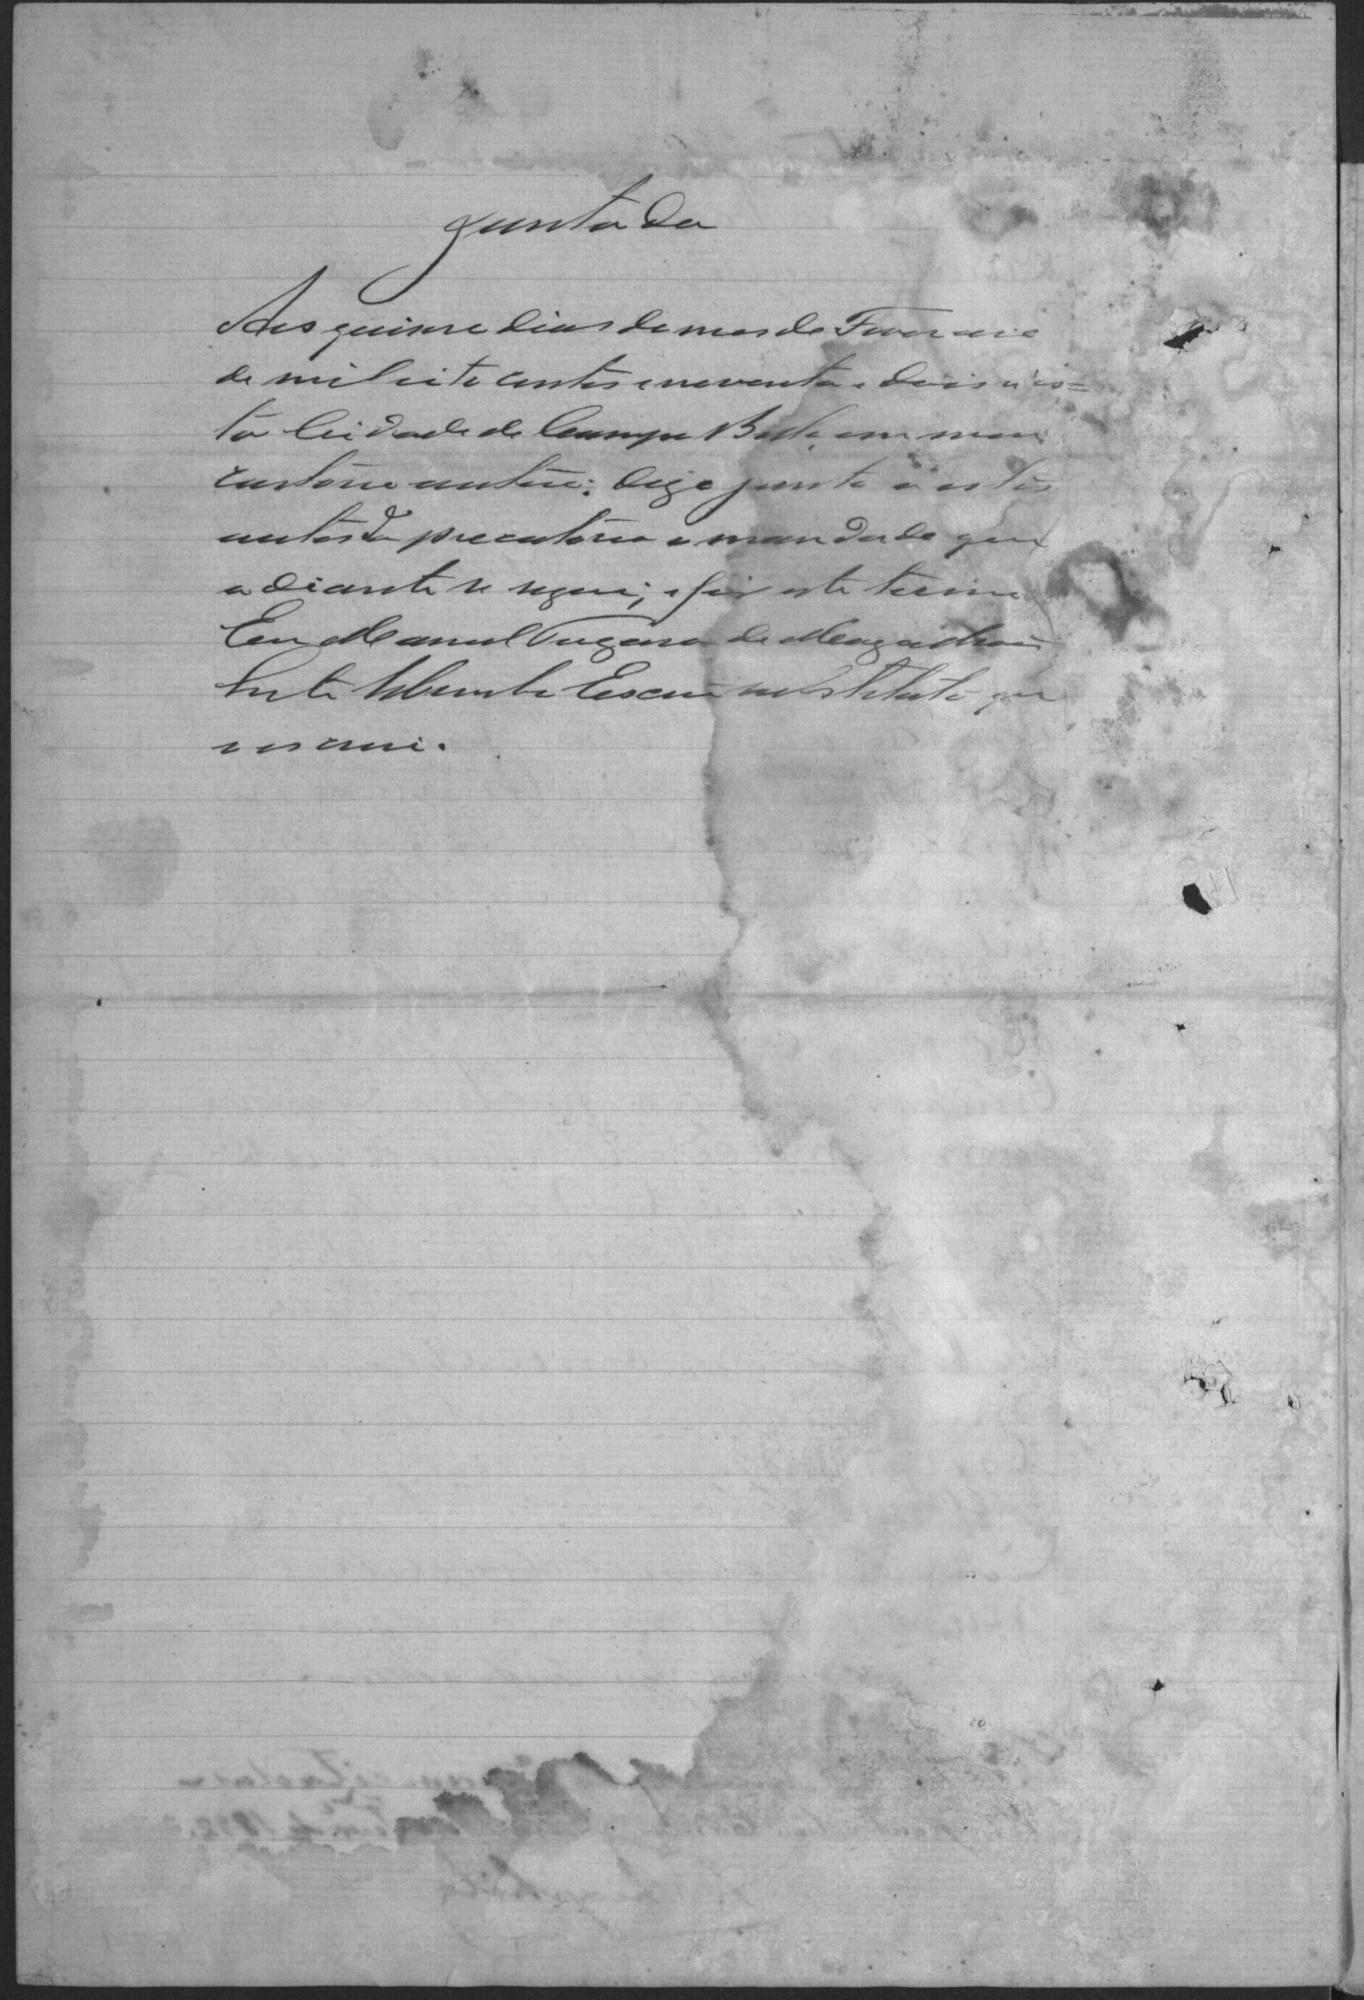 Juntada
Aos quinze dias do mes de Fevereiro
de mil oito centos e noventa e dois nes=
ta Cidade de Campo Bello em meu
cartorio autoei: digo junto a estes
autos a precatoria e mandado que
adiante se segue; e fiz este termo
Eu Manoel de Magalhães
Escrivão substituto que
escrevi.